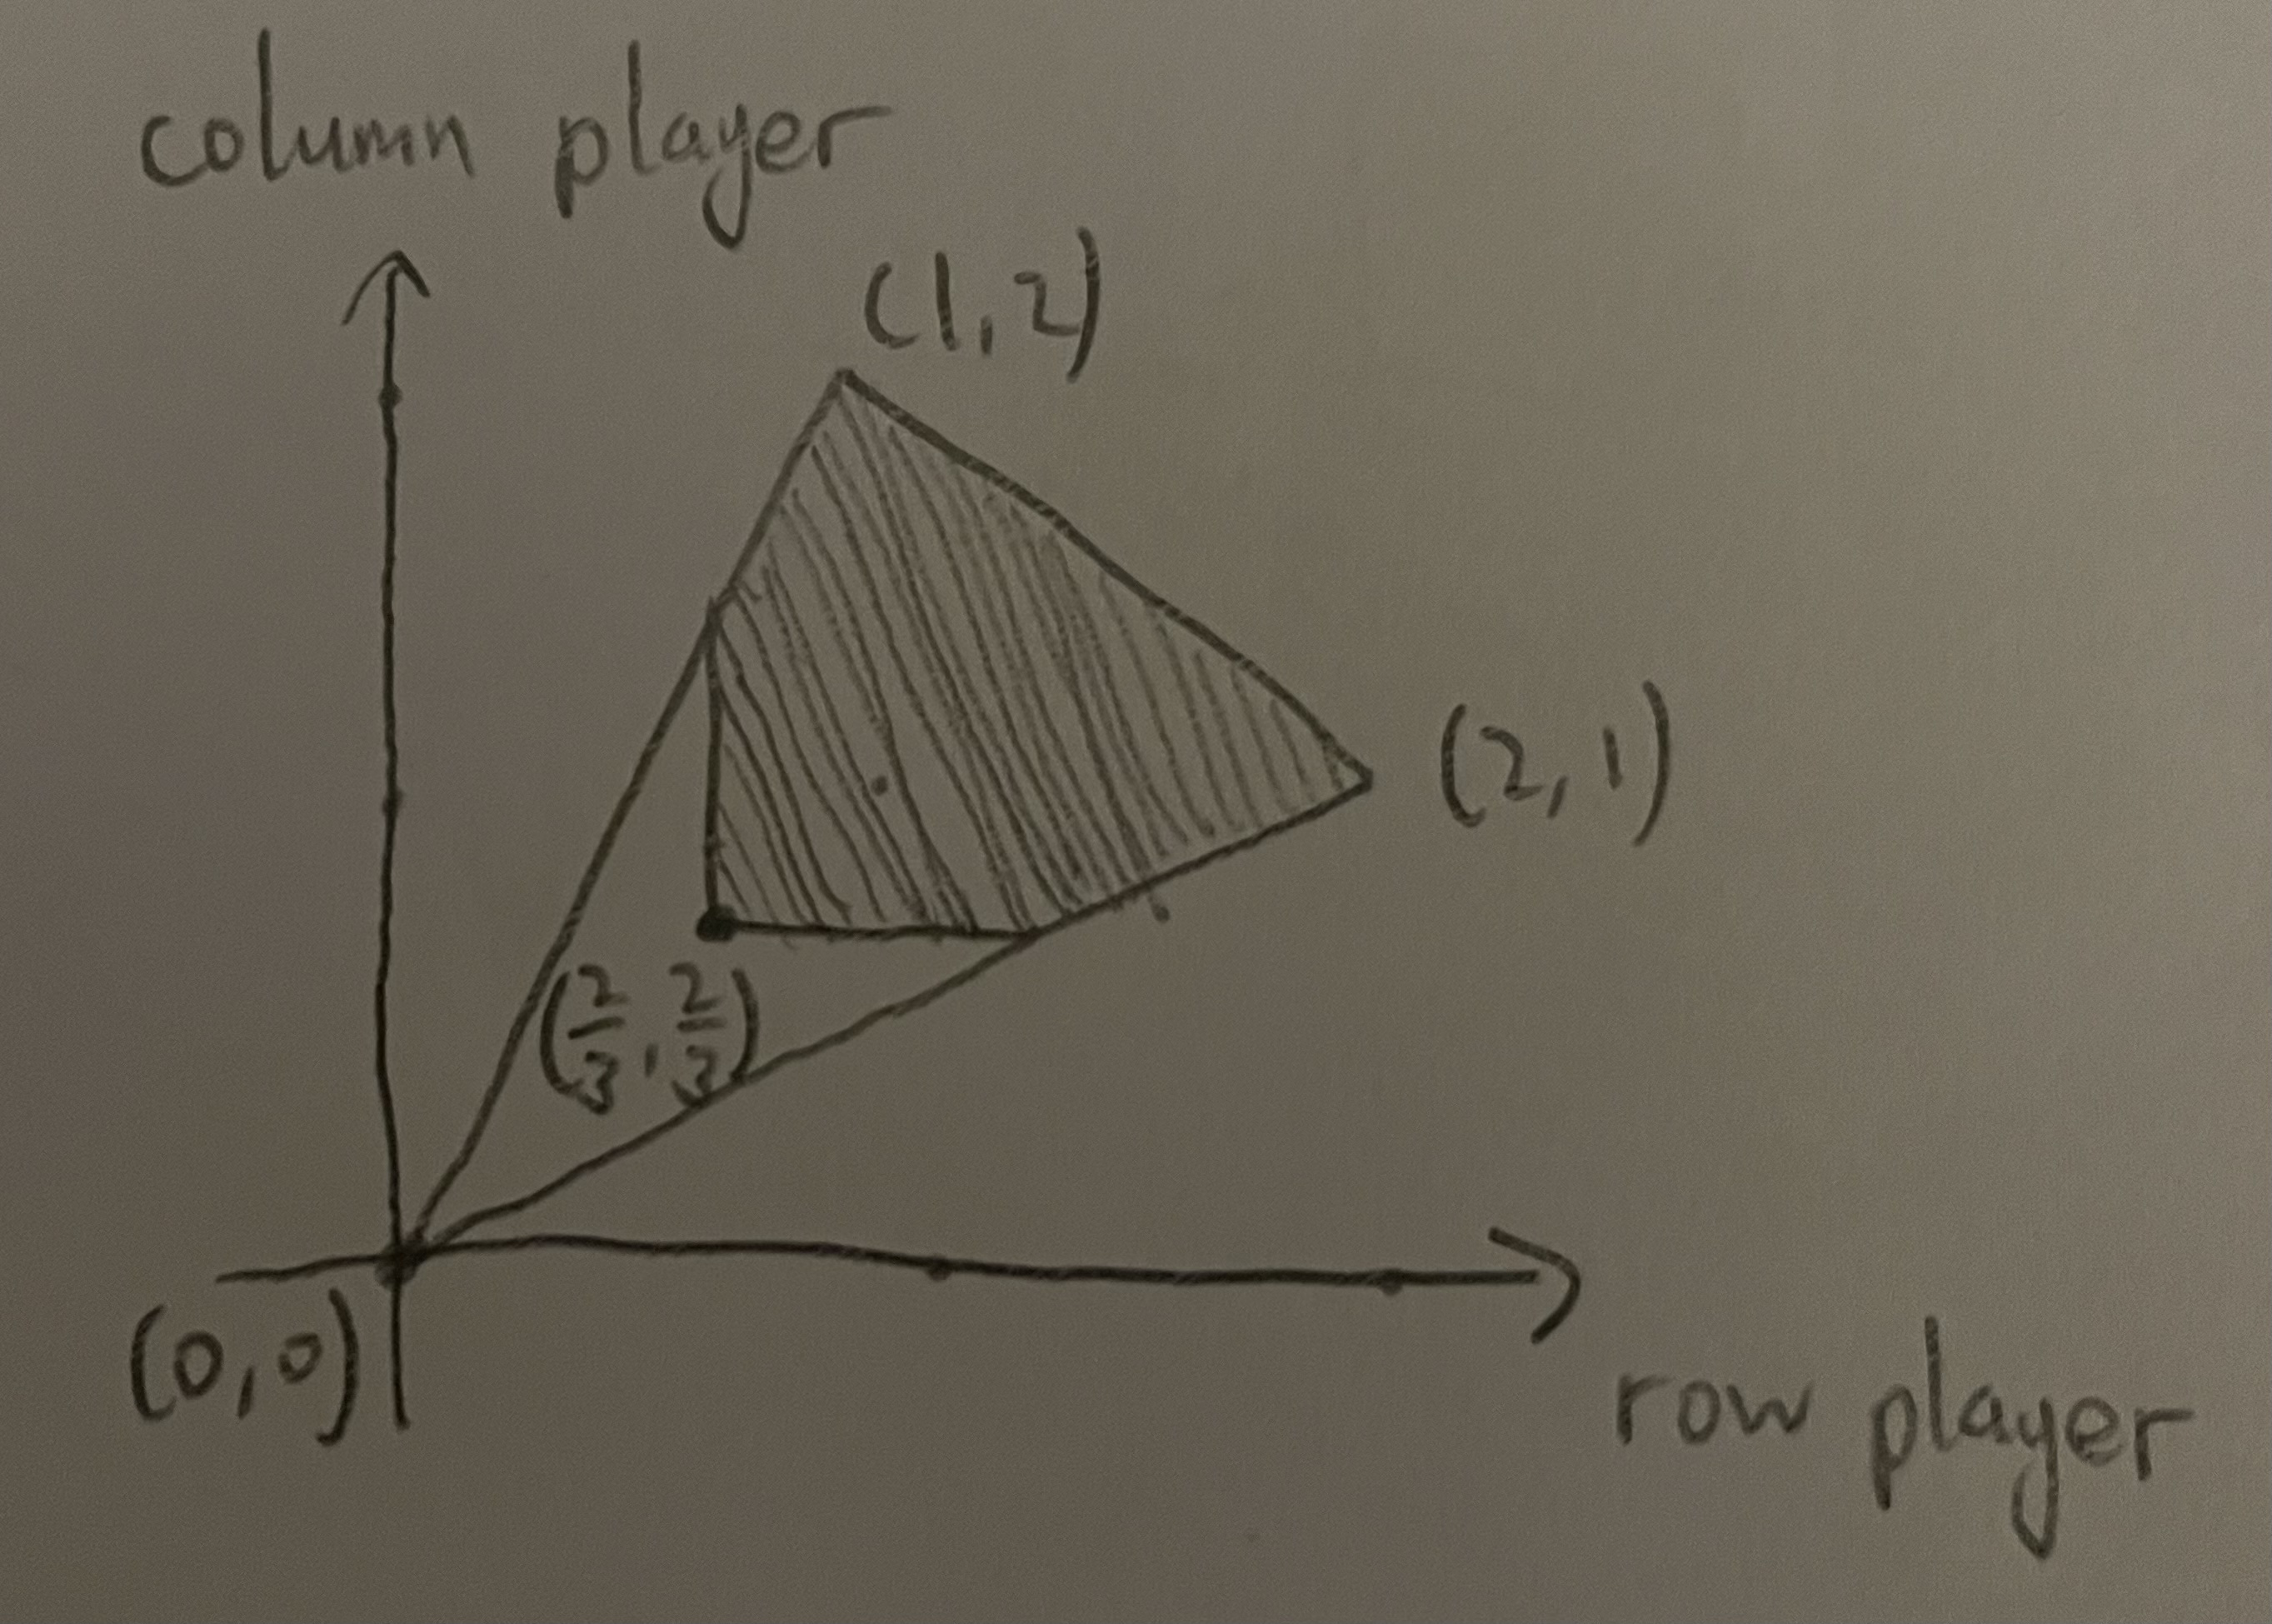 column player
(1,2)
(2,1)
(2/3, 2/3)
(0,0)
row player